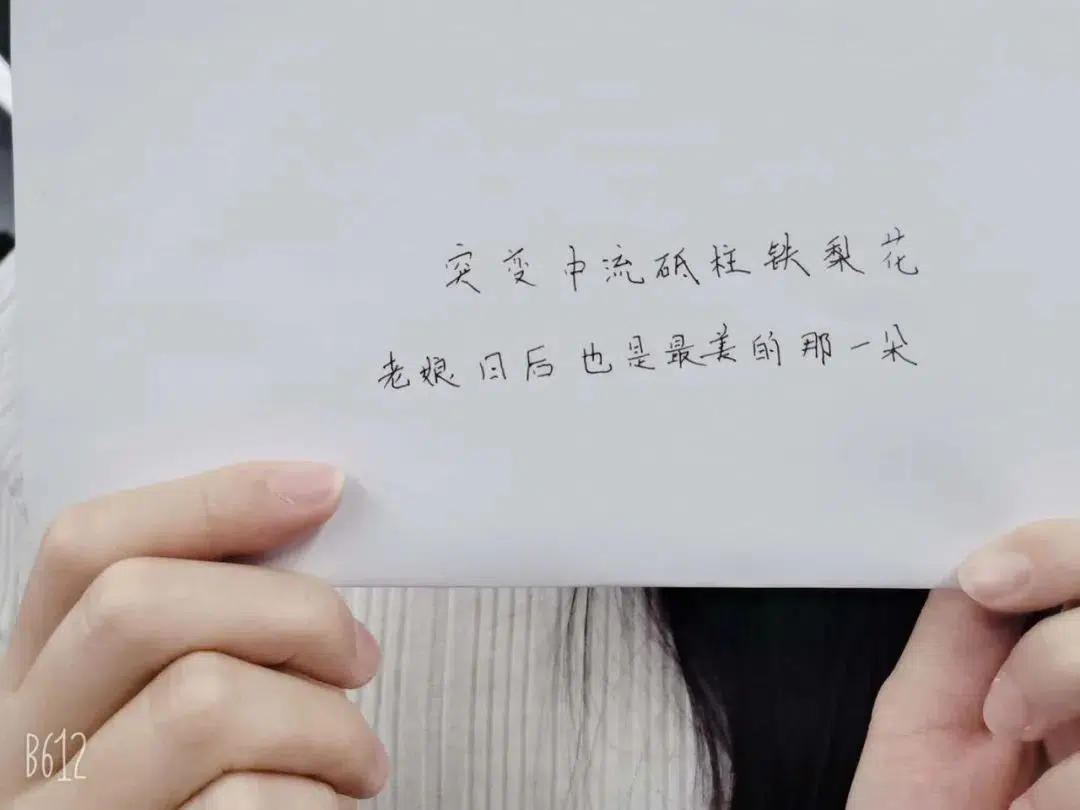 突变中流砥柱铁梨花
老娘日后也是最美的那一朵
B612